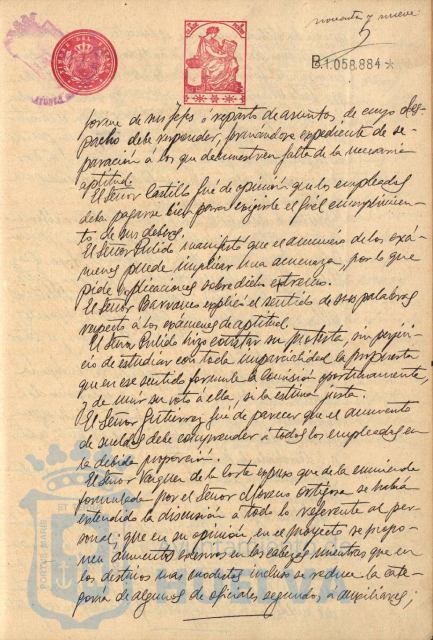 noventa y nueve
B.1.058.884*
forme de sus Jefes o reparto de asuntos, de cuyo des-
pacho debe responder, formandose expediente de se-
paración a los que demuestren falta de la necesaria
aptitud.
El Señor Castillo fué de opinión que los empleados
deben pagarse bien para exigirle el fiel cumplimien-
to de sus deberes.
El Señor Pulido manifestó que el anuncio de los exá-
menes puede implicar una amenaza, por lo que
pide explicaciones sobre dicho extremo.
El Señor Barranco explicó el sentido de sus palabras
respecto á los exámenes de aptitud.
El Señor Pulido hizo constar su protesta, sin perjui-
cio de estudiar con toda imparcialidad la propuesta
que en ese sentido formule la Comisión oportunamente,
y de unir su voto a ella, si la estima justa.
El Señor Gutierrez fué de parecer que el aumento
de sueldos debe comprender a todos los empleados en
la debida proporción.
El Señor Vazquez de la Corte expuso que de la enmienda
formulada por el Señor Moreno Ortigosa se había
extendido la discusión a todo lo referente al per-
sonal; que en su opinión, en el proyecto se propo-
nen aumentos en las cabezas mientras que en
los destinos mas modestos incluso se reduce la cate-
goría de algunos de oficiales segundos a auxiliares;